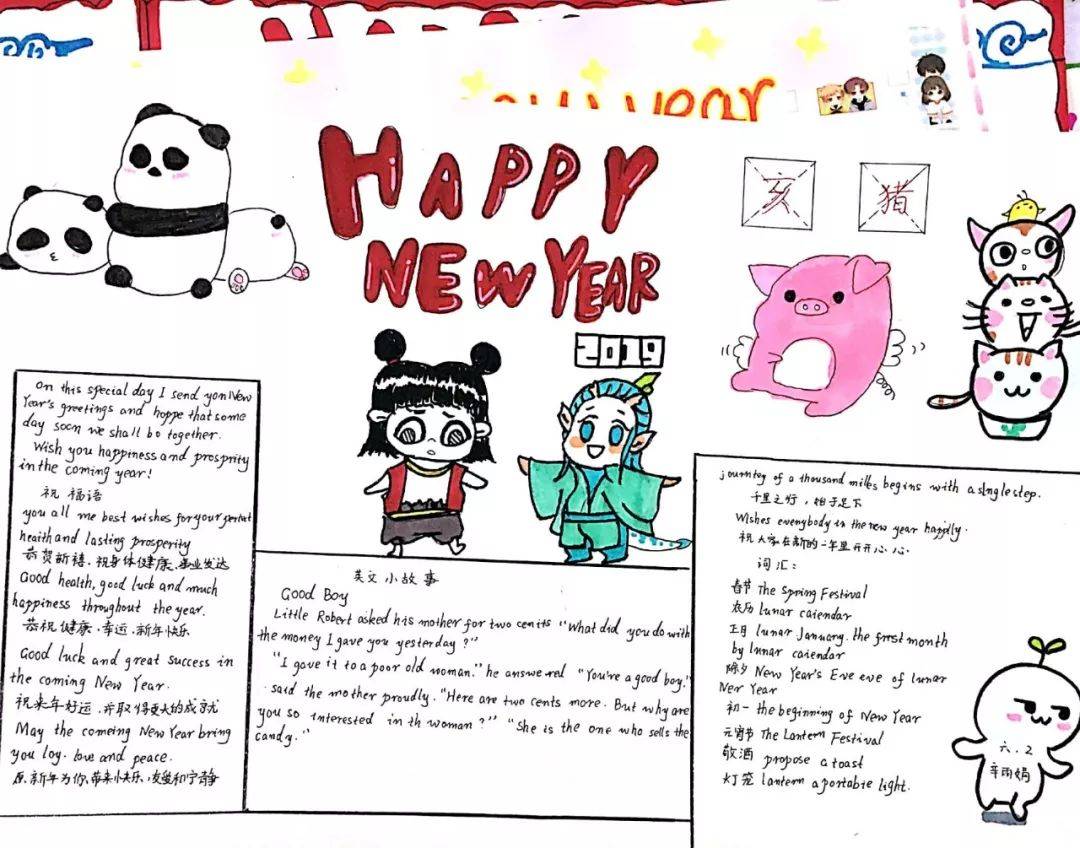 year
HAPPY
NEW YEAR
亥 猪
2019
On this special day I send yon New
Year's greetings and hoppe that some
day soon we shall bo together.
Wish you happiness and prosprity
in the coming year!
祝福语
you all me best wishes for your
heaith and lasting prosperity
恭贺新禧、祝身体健康、事业发达
Good health, good luck and much
happiness throughout the year.
恭祝健康、幸运、新年快乐
Good luck and great success in
the coming New Year.
祝来年好运、并取得更大的成就
May the comeing New Year bring
you loy. love and peace.
新年为你带来快乐、友爱和宁静
英文小故事
Good Boy
Little Robert asked his mother for two cenits "What did you do with
the money I gave you yesterday?"
"I gave it to a poor old woman." he answered "You're a good boy."
said the mother proudly. "Here are two cents more. But why are
you so interested in th woman?" "She is the one who sells the
candy."
journtey of a thousand milks begins with a single step.
千里之行，始于足下
Wishes evenybody in the new year happily.
祝大家在新的一年里开开心心
词汇：
春节 The Spring Festival
农历 lunar caiendar
正月 lunar January. the frrst month
by lunar caiendar
除夕 New Year's Eve eve of lunar
Ner Year
初一 the beginning of New Year
元宵节 The Lantern Festival
敬酒 propose a toast
灯笼 lantern a portabie light.
六.2
辛雨娟